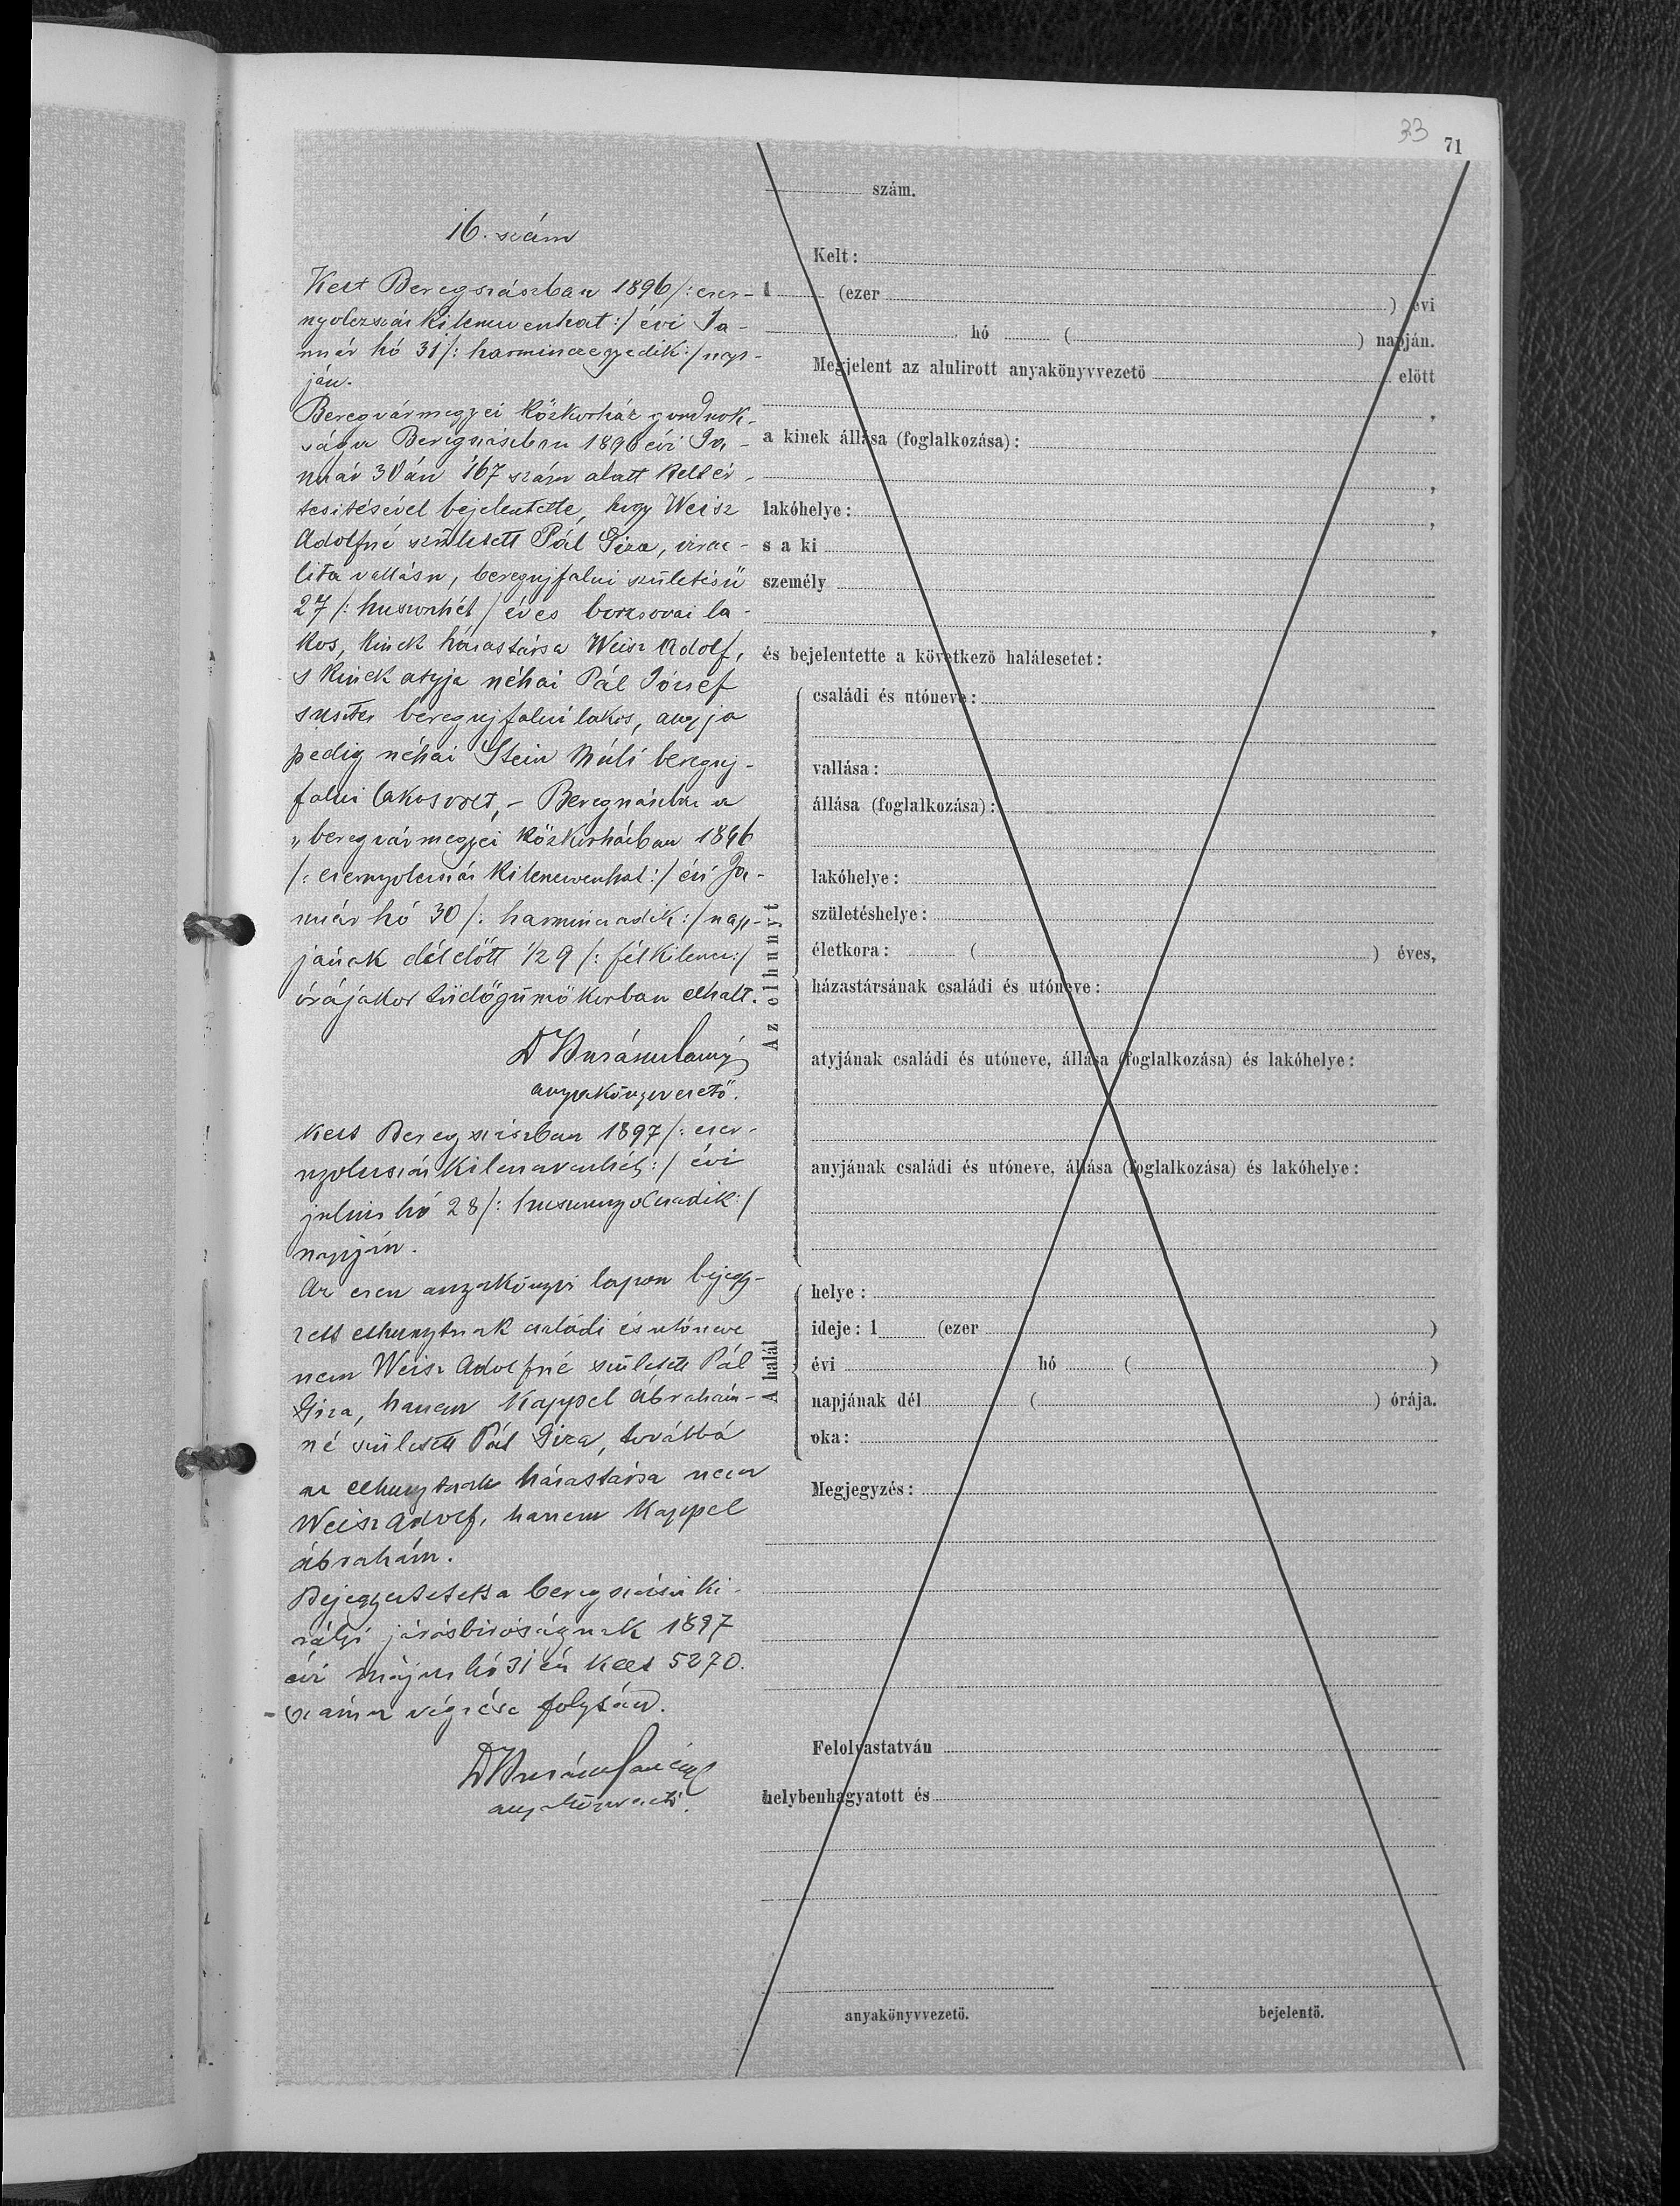 33
71
16. szám
Kelt Beregszászban 1896 /: ezer-
nyolczszázkilenczvenhat :/ évi Ja-
nuár hó 31 /: harminczegyedik :/ nap-
ján.
Beregvármegyei közkórház gondnok-
sága Beregszászban 1896 évi Ja-
nuár 30án 167 szám alatt kelt ér-
tesitésével bejelentette, hogy Weisz
Adolfné született Pál Giza, izrae-
lita vallásu, beregujfalui születésü
27 /: huszonhét / éves borzsovai la-
kos, kinek házastársa Weisz Adolf,
s kinek atyja néhai Pál József
suszter beregujfalui lakos, anyja
pedig néhai Stein Máli bereguj-
falui lakos volt, – Beregszászba a
„beregvármegyei közkórházban 1896
/: ezernyolczszázkilenczvenhat :/ évi Ja-
nuár hó 30 /: harminczadik :/ nap-
jának délelőtt ½ 9 /: félkilencz :/
órájakor tüdőgümőkorban elhalt.
anyakönyvvezető.
Kelt Beregszászban 1897 /: ezer-
nyolczszázkilenczvenhét :/ évi
julius hó 28 /: huszonnyolczadik :/
napján.
Az ezen anyakönyvi lapon bejegy-
zett elhunytnak családi és utóneve
nem Weisz Adolfné született Pál
Giza, hanem Kappel Ábrahám-
né született Pál Giza, továbbá
az elhunytnak házastársa nem
Weisz Adolf, hanem Kappel
Ábrahám.
Bejegyeztetett a beregszászi ki-
rályi járásbiróságnak 1897
évi május hó 31én kelt 5270.
számu végzése folytán.
anyakönyvvezető.
szám.
Kelt:
1 (ezer ) évi
hó ( ) napján.
Megjelent az alulirott anyakönyvvezető előtt
,
a kinek állása (foglalkozása):
,
lakóhelye: ,
s a ki
személy
,
és bejelentette a következő halálesetet:
Az elhunyt
családi és utóneve:
vallása:
állása (foglalkozása):
lakóhelye:
születéshelye:
életkora: ( ) éves,
házastársának családi és utóneve:
atyjának családi és utóneve, állása (foglalkozása) és lakóhelye:
anyjának családi és utóneve, állása (foglalkozása) és lakóhelye:
A halál
helye:
ideje: 1 (ezer )
évi hó ( )
napjának dél ( ) órája.
oka:
Megjegyzés:
Felolvastatván
helybenhagyatott és
anyakönyvvezető. bejelentő.